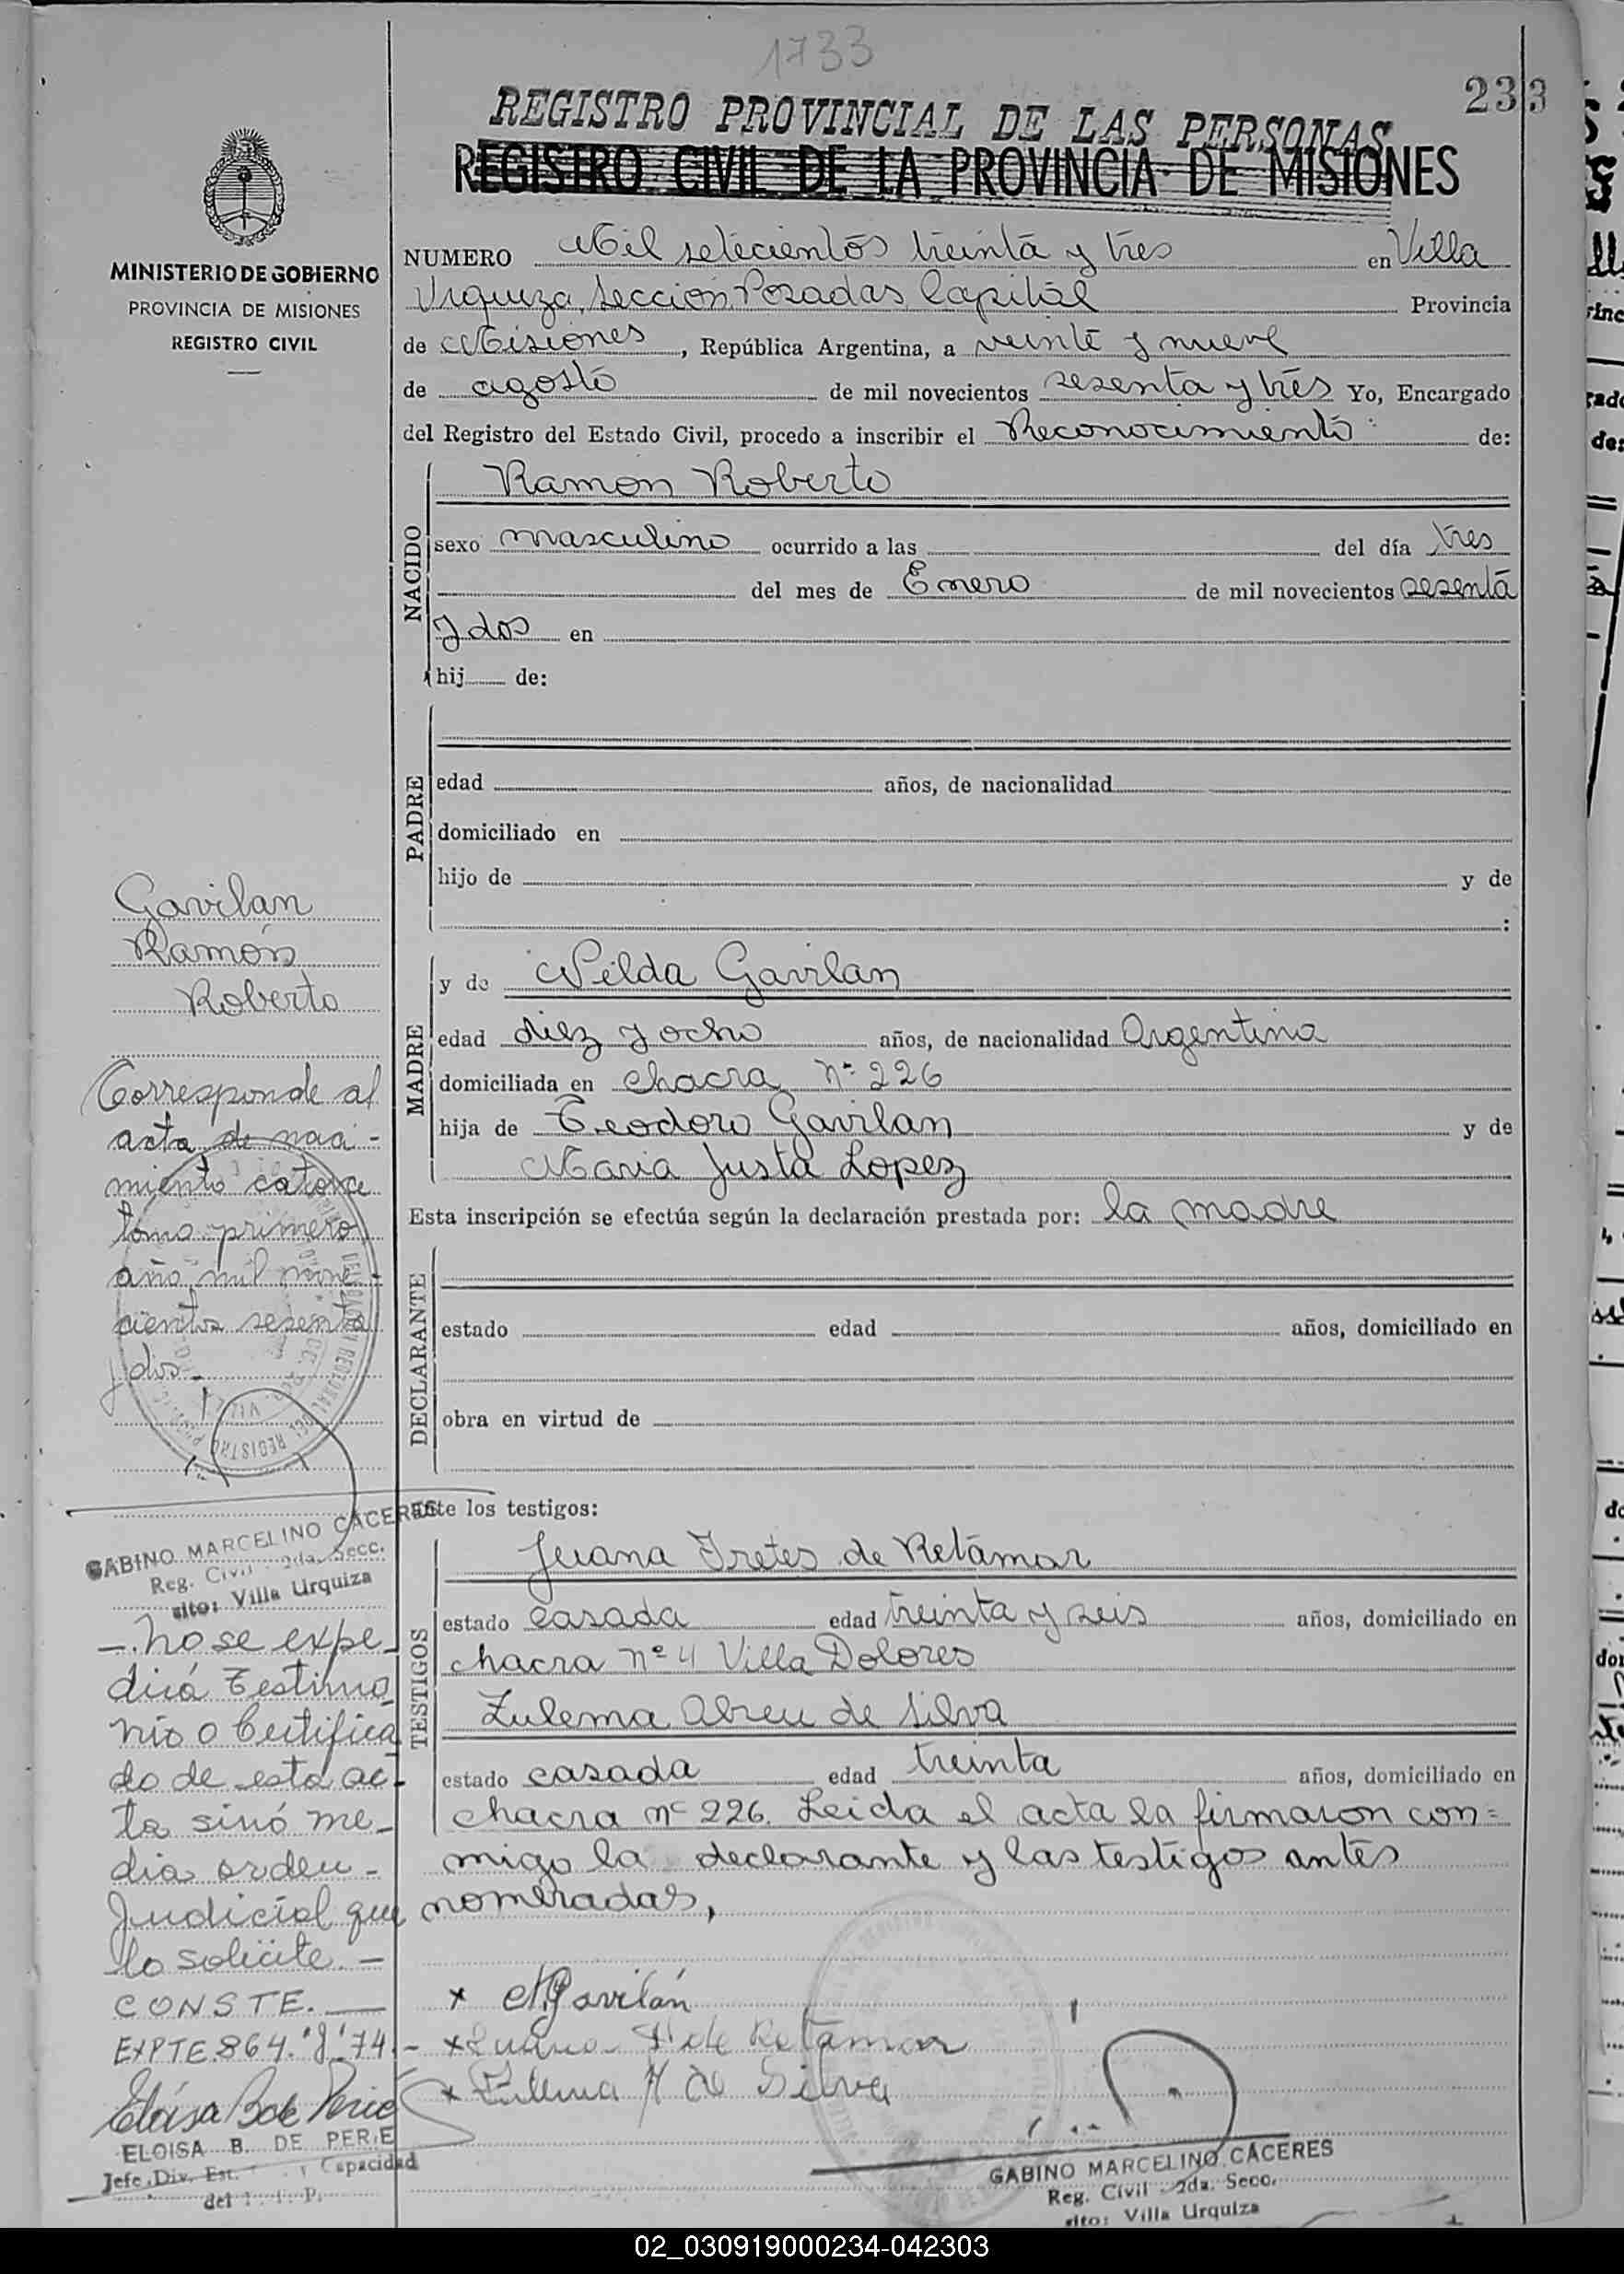 1733
233
REGISTRO PROVINCIAL DE LAS PERSONAS
REGISTRO CIVIL DE LA PROVINCIA DE MISIONES
MINISTERIO DE GOBIERNO
PROVINCIA DE MISIONES
REGISTRO CIVIL
NUMERO Mil setecientos treinta y tres en Villa
Urquiza, Sección Posadas Capital Provincia
de Misiones, República Argentina, a veinte y nueve
de agosto de mil novecientos sesenta y trés Yo, Encargado
del Registro del Estado Civil, procedo a inscribir el Reconocimiento de:
NACIDO
Ramon Roberto
sexo masculino ocurrido a las del día tres
del mes de Enero de mil novecientos sesenta
y dos en
hij de:
PADRE
edad años, de nacionalidad
domiciliado en
hijo de y de
:
MADRE
y de Nilda Gavilan
edad diez y ocho años, de nacionalidad Argentina
domiciliada en chacra nº 226
hija de Teodoro Gavilan y de
Maria Justa Lopez
Esta inscripción se efectúa según la declaración prestada por: la madre
DECLARANTE
estado edad años, domiciliado en
obra en virtud de
ante los testigos:
TESTIGOS
Juana Fretes de Retamar
estado casada edad treinta y seis años, domiciliado en
chacra nº 4 Villa Dolores
Zulema Abreu de Silva
estado casada edad treinta años, domiciliado en
chacra nº 226. Leida el acta la firmaron con=
migo la declarante y las testigos antes
nombradas,
x N Gavilán
x Juana F de Retamar
x Zulema A de Silva
GABINO MARCELINO CACERES
Reg. Civil 2da. Secc.
sito: Villa Urquiza
Gavilan
Ramón
Roberto
Corresponde al
acta de naci-
miento catorce
tomo primero
año mil nove-
cientos sesenta
y dos.
GABINO MARCELINO CACERES
Reg. Civil 2da. Secc.
sito: Villa Urquiza
-. No se expe-
dirá Testimo
nio o Certifica
do de esta ac-
ta sinó me-
dia orden -
Judicial que
lo solicite. -
CONSTE.
EXPTE. 864. "J" 74. -
Eloísa B de Perié
ELOISA B. DE PERIE
Jefe Div. Est. y Capacidad
del
02_030919000234-042303